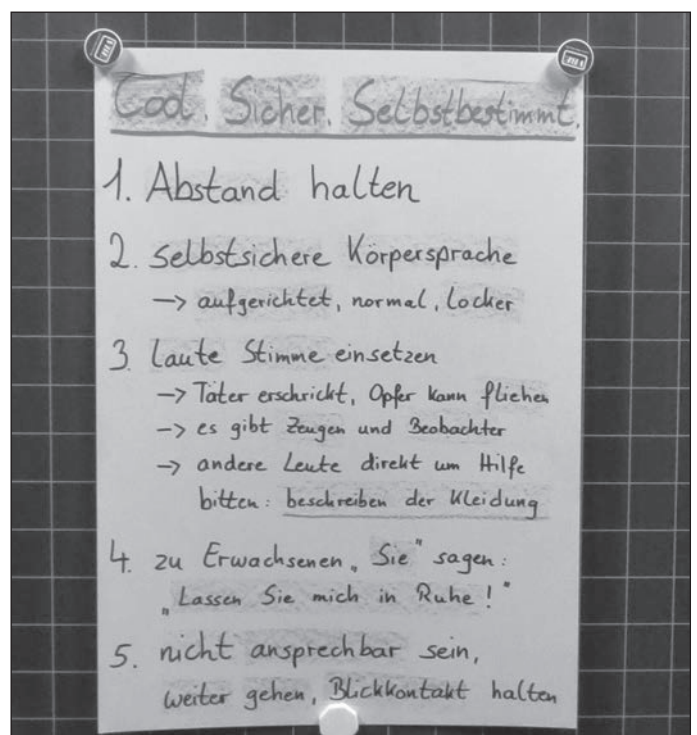 Cool. Sicher. Selbstbestimmt.
1. Abstand halten
2. Selbstsichere Körpersprache
→ aufgerichtet, normal, locker
3. Laute Stimme einsetzen
→ Täter erschrickt, Opfer kann fliehen
→ es gibt Zeugen und Beobachter
→ andere Leute direkt um Hilfe
bitten: beschreiben der Kleidung
4. zu Erwachsenen „Sie" sagen:
„Lassen Sie mich in Ruhe!"
5. nicht ansprechbar sein,
weiter gehen, Blickkontakt halten